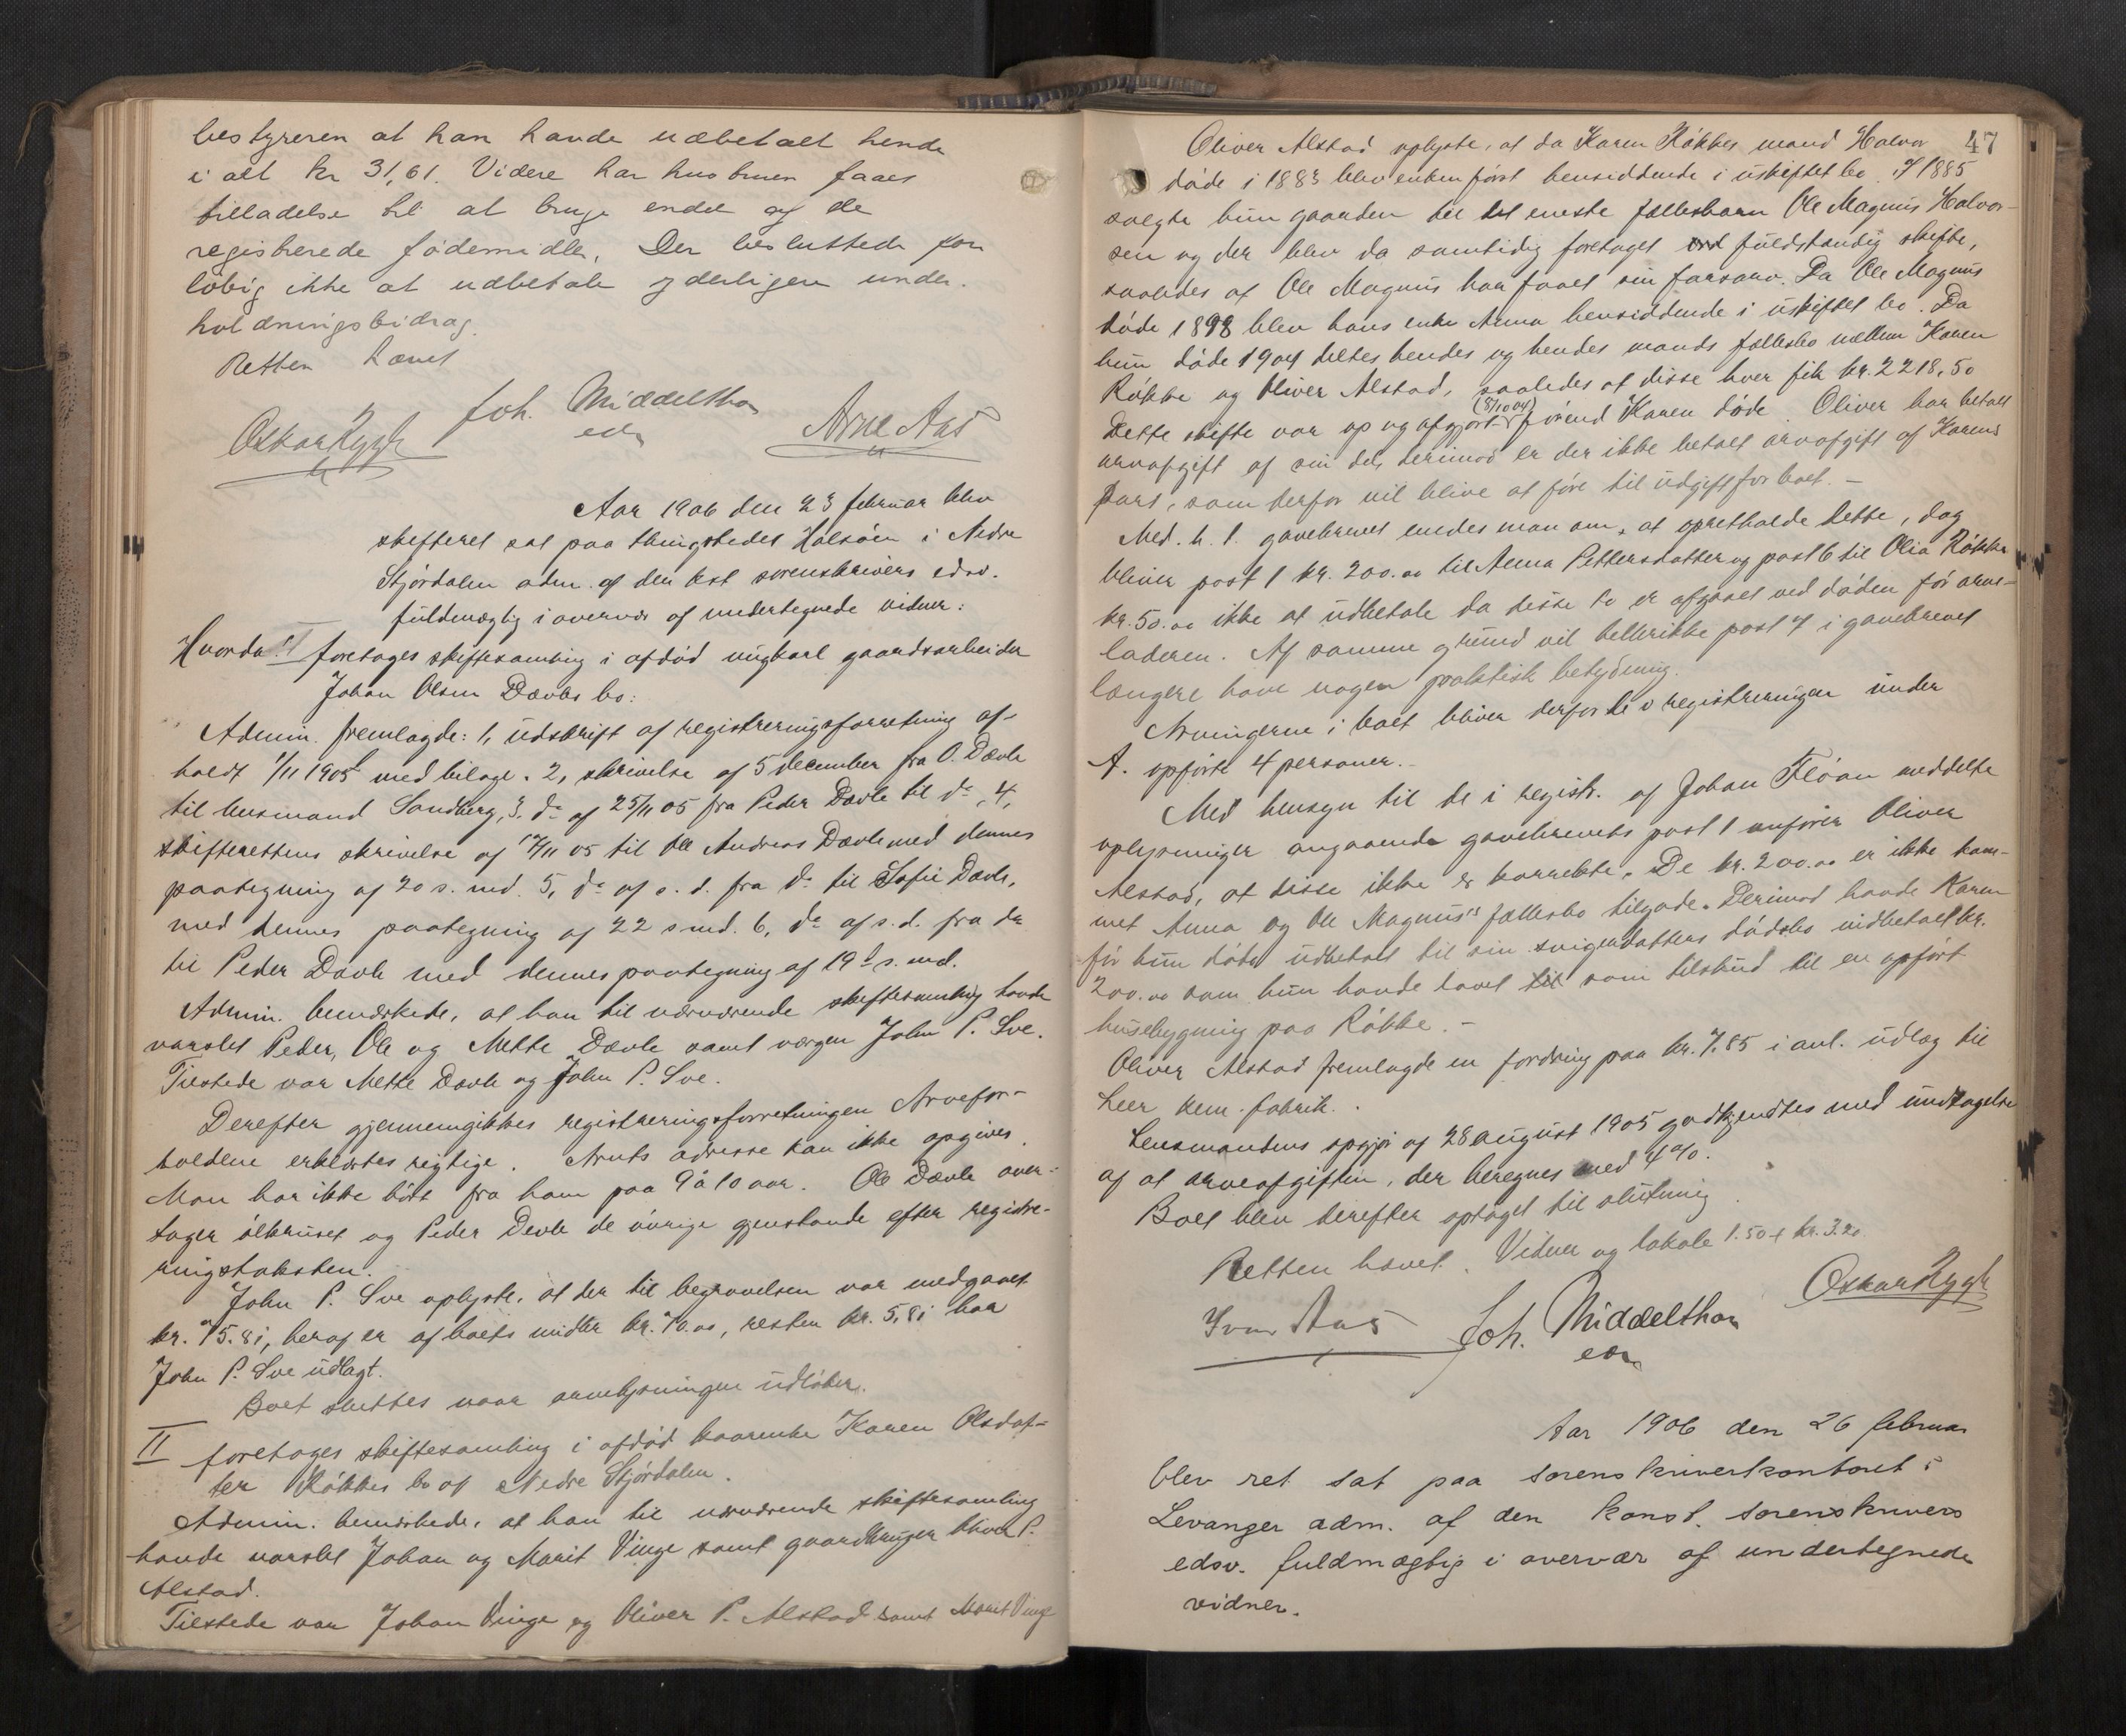 bestyreren at han havde udbetalt hende
i alt kr 31,61. Videre har hustruen faaet
tilladelse til at bruge endel af de
registrerede fødemidler. Der besluttedes for
løbig ikke at udbetale yderligere under-
holdningsbidrag.
Retten hævet
Joh. Middelthon
edsv
Oskar Rygh Arne Aas
Aar 1906 den 23 februar blev
skifteret sat paa thingstedet Halsøen i Nedre
Stjørdalen adm. af den kst sorenskrivers edsv.
fuldmægtig i overvær af undertegnede vidner:
Hvorda: I foretoges skiftesamling i afdød ungkarl gaardsarbeider
Johan Olsen Dævles bo:
Admin. fremlagde: 1, udskrift af registreringsforretning af-
holdt 1/11 1905 med bilage. 2, skrivelse af 5 december fra O. Dævle
til lensmand Sandberg, 3. do af 25/11 05 fra Peder Dævle til do, 4,
skifterettens skrivelse af 17/11 05 til Ole Andreas Dævle med dennes
paategning af 20 s. md. 5, do af s. d. fra do til Sofie Dævle,
med dennes paategning af 22 s md. 6, do af s. d. fra do
til Peder Dævle med dennes paategning af 19d s. md.
Admin. bemærkede, at han til nærværende skiftesamling havde
varslet Peder, Ole og Mette Dævle samt værgen John P. Sve.
Tilstede var Mette Dævle og John P. Sve.
Derefter gjennemgikkes registreringsforretningen Arvefor-
holdene erklærtes rigtige. Arnts adresse kan ikke opgives.
Man har ikke hørt fra ham paa 9 à 10 aar. Ole Dævle over-
tager ølkruset og Peder Devle de øvrige gjenstande efter registre-
ringstaksten.
John P. Sve oplyste, at der til begravelsen var medgaaet
kr. 75.81, heraf er af boets midler kr. 70.00, resten kr. 5,81 har
John P. Sve udlagt.
Boet sluttes naar arvelysningen udløber.
II foretoges skiftesamling i afdød kaarenke Karen Olsdat-
ter Røkkes bo af Nedre Stjørdalen.
Admin. bemærkede, at han til nærværende skiftesamling
havde varslet Johan og Marit Vinge samt gaardbruger Oliver P.
Alstad.
Tilstede var Johan Vinge og Oliver P. Alstad samt Marit Vinge
47
Oliver Alstad oplyste, at da Karen Røkkes mand Halvor
døde i 1883 blev enken først hensiddende i uskiftet bo. I 1885
solgte hun gaarden til det eneste fællesbarn Ole Magnus Halvor-
sen og der blev da samtidig foretaget fuldstændig skifte,
saaledes at Ole Magnus har faaet sin farsarv. Da Ole Magnus
døde 1898 blev hans enke Anna hensiddende i uskiftet bo. Da
hun døde 1904 deltes hendes og hendes mands fællesbo mellem Karen
Røkke og Oliver Alstad, saaledes at disse hver fik kr. 2218,50
(8/10 04)
Dette skifte var op og afgjort førend Karen døde. Oliver har betalt
arveafgift af sin del, derimod er der ikke betalt arvafgift af Karens
part, som derfor vil blive at føre til udgift for boet. –
Med. h. t. gavebrevet enedes man om, at opretholde dette, dog
bliver post 1 kr. 200.00 til Anna Pettersdatter og post 6 til Olia Røkke
kr. 50.00 ikke at udbetale da disse to er afgaaet ved døden før arve-
laderen. Af samme grund vil hellerikke post 7 i gavebrevet
længere have nogen praktisk betydning.
Arvingerne i boet bliver derfor de i registreringen under
A. opførte 4 personer. –
Med hensyn til de i registr. af Johan Fløan meddelte
oplysninger angaaende gavebrevets post 1 anfører Oliver
Alstad, at disse ikke er korrekte. De kr. 200.00 er ikke kom-
met Anna og Ole Magnus's fællesbo tilgode. Derimod havde Karen
før hun døde udbetalt til sin svigerdatters dødsbo indbetalt kr.
200.00 som hun havde lovet til som tilskud til en opført
husebygning paa Røkke. –
Oliver Alstad fremlagde en fordring paa kr. 7.85 i anl. udlæg til
Leer kem. fabrik.
Lensmandens opgjør af 28 august 1905 godkjendtes med undtagelse
af at arveafgiften, der beregnes med 4 %.
Boet blev derefter optaget til slutning
Retten hævet. Vidner og lokale 1.50 + kr. 3.20
Ivar Aas Joh. Middelthon Oskar Rygh
edsv
Aar 1906 den 26 februar
blev ret sat paa sorenskriverkontoret i
Levanger adm. af den konst. sorenskrivers
edsv. fuldmægtig i overvær af undertegnede
vidner.